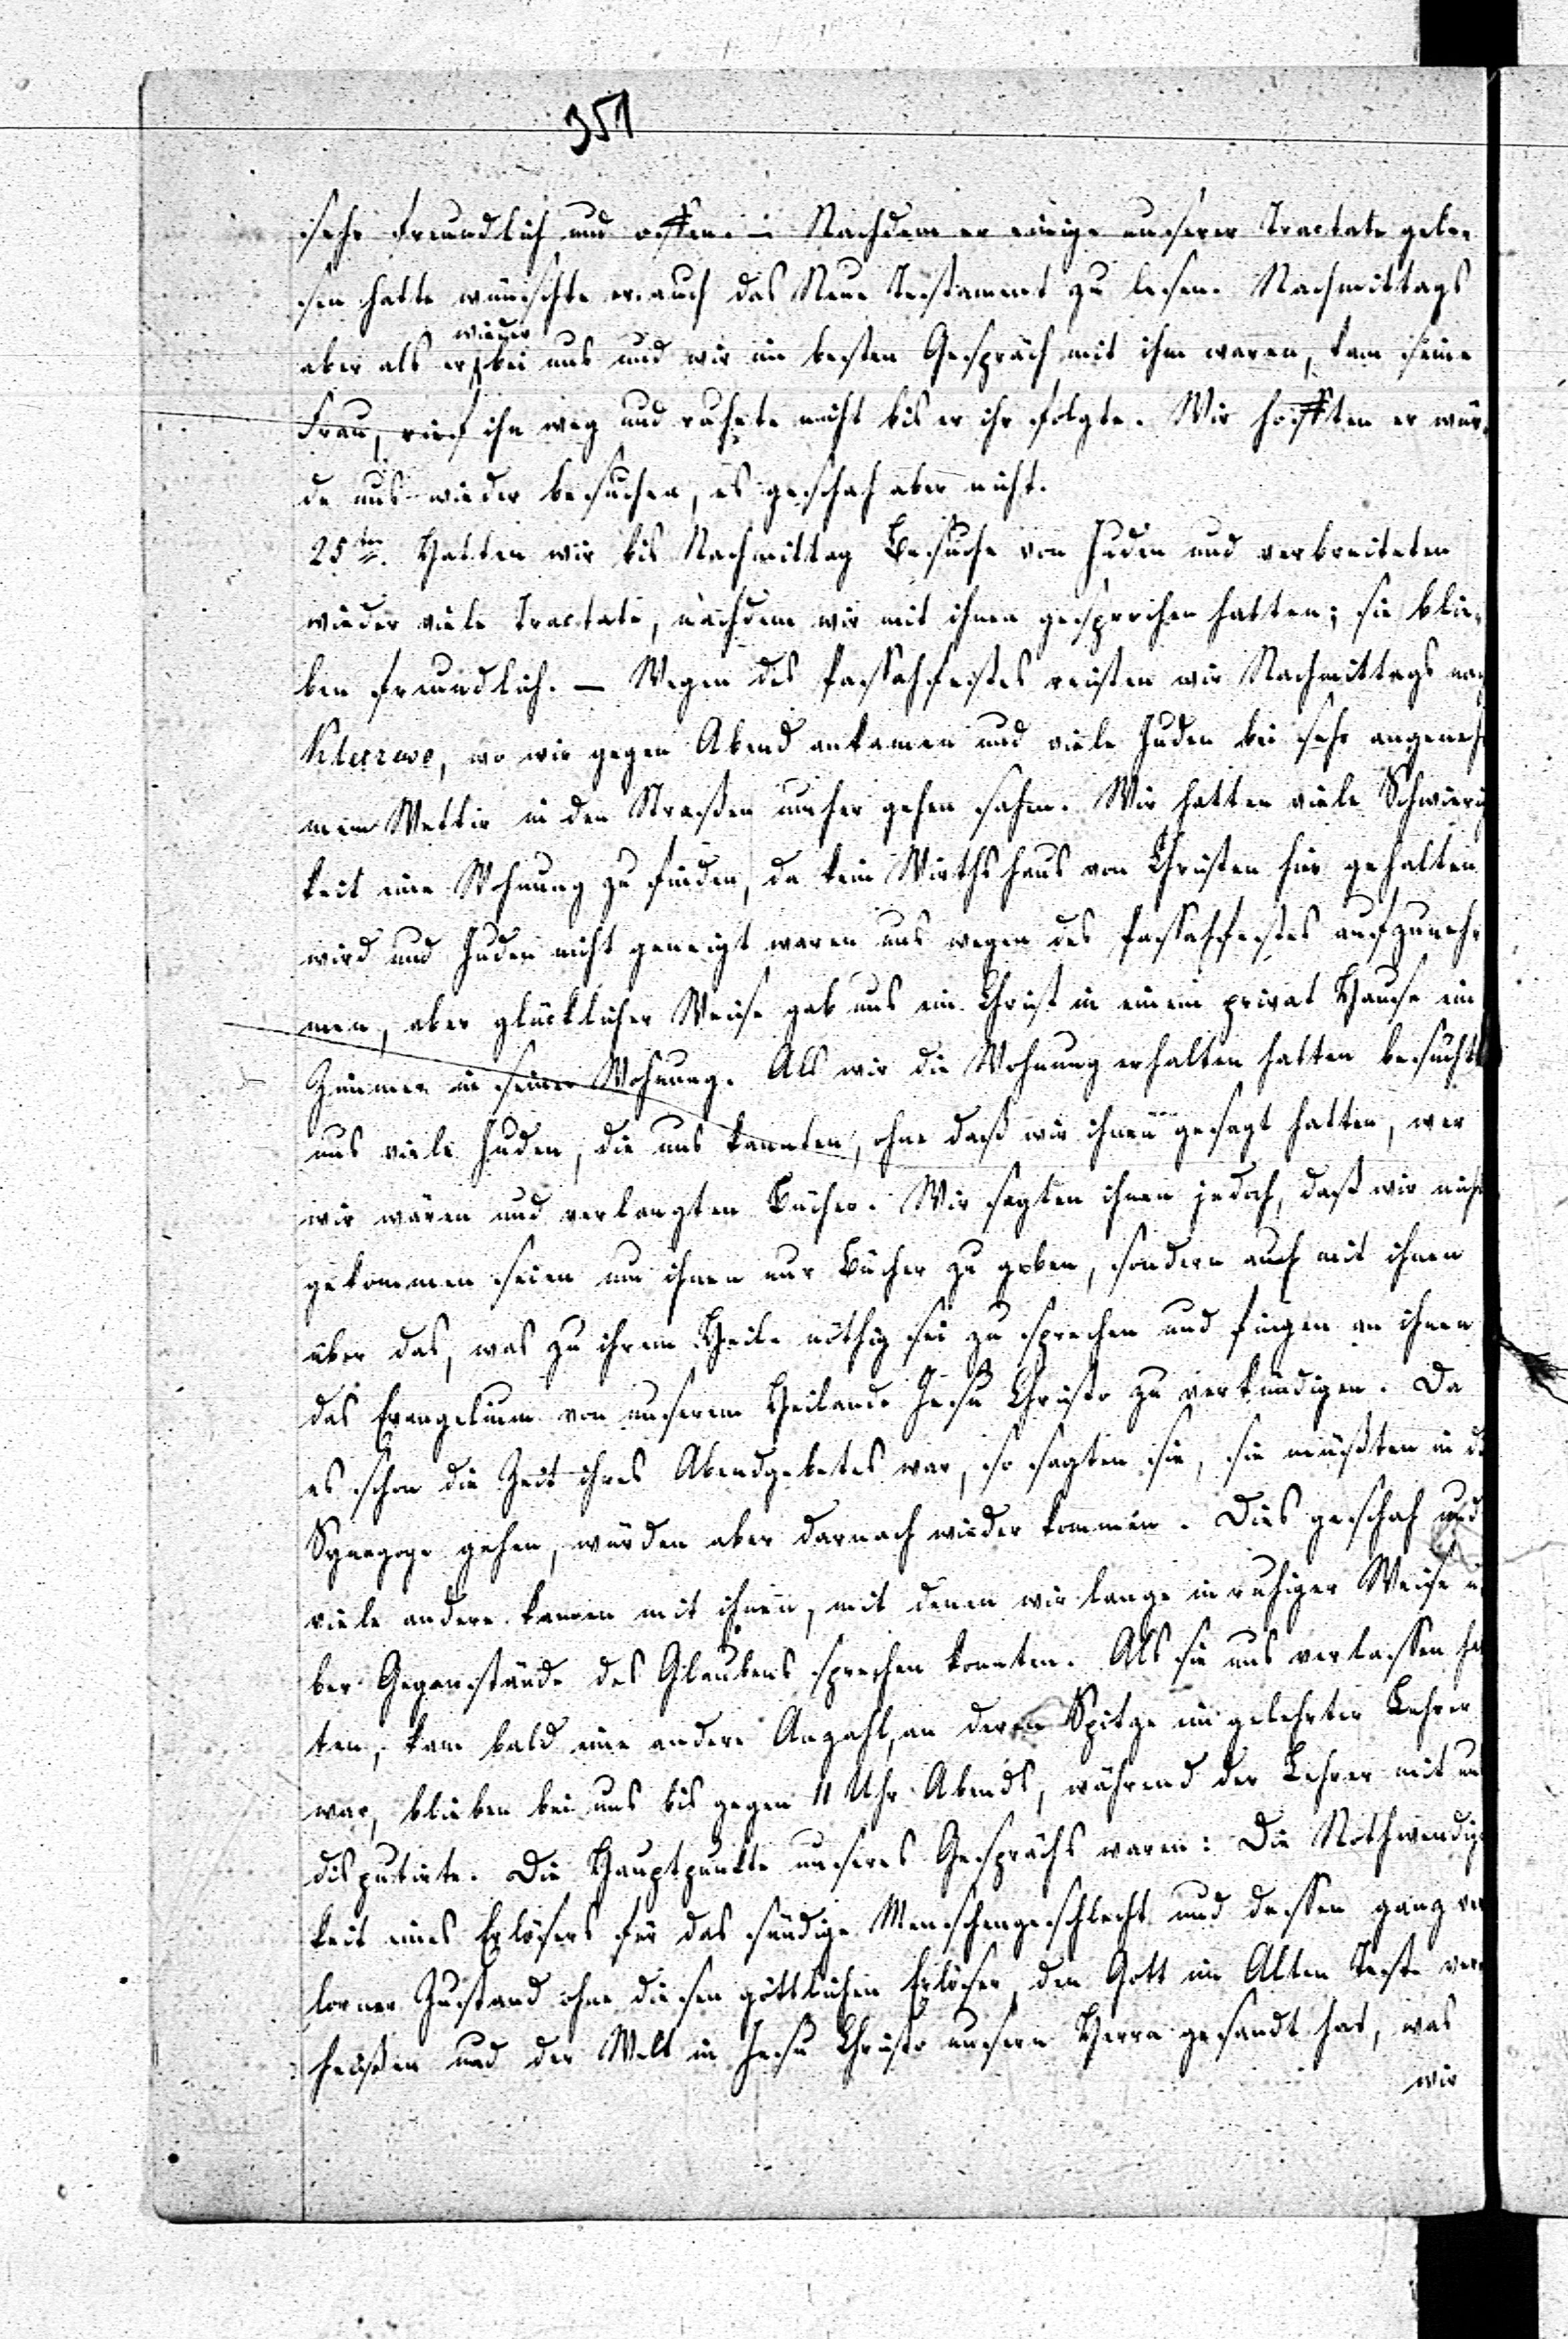 351
sehr freundlich und offen. – Nachdem er einige unserer Tractate gele-
sen hatte wünschte er auch das Neue Testament zu lesen. Nachmittags
wieder
aber als er bei uns und wir im besten Gespräch mit ihm waren, kam seine
Frau, rief ihn weg und ruhete nicht bis er ihr folgte. Wir hofften er wür-
de uns wieder besuchen, es geschah aber nicht.
25ten. Hatten wir bis Nachmittag Besuche von Juden und verbreiteten
wieder viele Tractate, nachdem wir mit ihnen gesprochen hatten; sie blie-
ben freundlich. – Wegen des Passahfestes reisten wir Nachmittags nach
wo wir gegen Abend ankamen und viele Juden bei sehr angeneh-
mem Wetter in den Straßen umher gehen sahen. Wir hatten viele Schwierig
keit eine Wohnung zu finden, da kein Wirthshaus von Christen hier gehalten
wird und Juden nicht geneigt waren uns wegen des Passahfestes aufzuneh-
men, aber glücklicher Weise gab uns ein Christ in einem privat Hause ein
Zimmer in seiner Wohnung. Als wir die Wohnung erhalten hatten besucht
uns viele Juden, die uns kannten, ohne daß wir ihnen gesagt hatten, wer
wir wären und verlangten Bücher. Wir sagten ihnen jedoch, daß wir nicht
gekommen seien um ihnen nur Bücher zu geben, sondern auch mit ihnen
über das, was zu ihrem Heile nöthig sei zu sprechen und fingen an ihnen
das Evangelium von unserem Heilande Jesu Christo zu verkündigen. Da
es schon die Zeit ihres Abendgebetes war, so sagten sie, sie müßten in d
Synagoge gehen, würden aber darnach wieder kommen. Dies geschah und
viele andere kamen mit ihnen, mit denen wir lange in ruhiger Weise ü
ber Gegenstände des Glaubens sprechen konnten. Als sie uns verlassen ha
ten, kam bald eine andere Anzahl, an deren Spitze ein gelehrter Lehrer
war, blieben bei uns bis gegen 11 Uhr Abends, während der Lehrer mit un
disputirte. Die Hauptpunkte unseres Gesprächs waren: Die Nothwendig
keit eines Erlösers für das sündige Menschengeschlecht und dessen ganz ver
lorner Zustand ohne diesen göttlichen Erlöser, den Gott im Alten Test. ver
heißen und der Welt in Jesu Christo unsern Herrn gesandt hat, was
wir